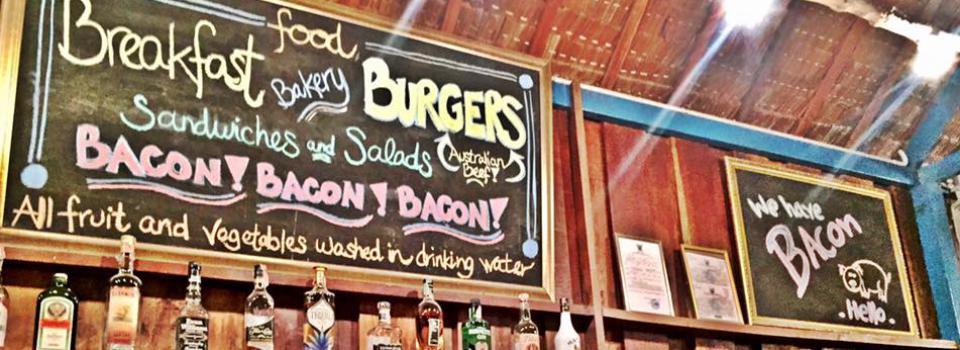 Breakfast food,
Bakery BURGERS
Sandwiches and Salads
Australian
Beef!
BACON! BACON! BACON!
All fruit and vegetables washed in drinking water
We have
BAcon
.Hello.
TEQUILA